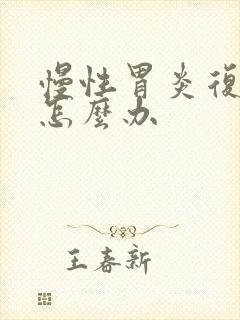 慢性胃炎復
怎麼办
王春新